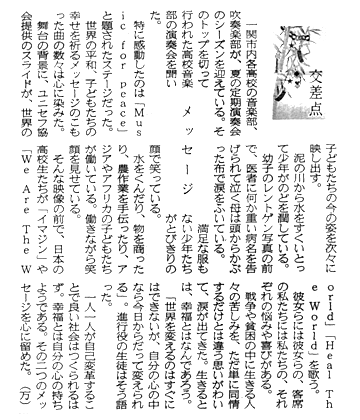 交差点
メッセージ
一関市内各高校の音楽部、
吹奏楽部が、夏の定期演奏会
のシーズンを迎えている。そ
のトップを切って
行われた高校音楽
部の演奏会を聞い
た。
特に感動したのは「Mus
ic for peace」
と題されたステージだった。
世界の平和、子どもたちの
幸せを祈るメッセージのこも
った曲の数々は心に染みた。
舞台の背景に、ユニセフ協
会提供のスライドが、世界の
子どもたちの今の姿を次々に
映し出す。
泥の川から水をすくいとっ
て少年がのどを潤している。
幼子のレントゲン写真の前
で、医者に何か重い病名を告
げられて泣く母は頭からかぶ
った布で涙をふいている。
満足な服も
ない少年たち
がとびきりの
顔で笑っている。
水をくんだり、物を商った
り、農作業を手伝ったり、ア
ジアやアフリカの子どもたち
が働いている。働きながら笑
顔を見せている。
そんな映像の前で、日本の
高校生たちが「イマジン」や
「We Are The W
orld」「Heal Th
e World」を歌う。
彼女らには彼女らの、客席
の私たちには私たちの、それ
ぞれの悩みや喜びがある。
戦争や貧困の中に生きる人
々の苦しみを、ただ単に同情
するだけとは違う思いがわい
て、涙が出てきた。生きると
は、幸福とはなんであろう。
「世界を変えるのはすぐに
はできないが、自分の心の中
なら今日からだって変えられ
る」。進行役の生徒はそう語
った。
一人一人が自己変革するこ
とで良い社会はつくられるは
ず。幸福とは自分の心の持ち
ようである。その二つのメッ
セージを心に留めた。(万)